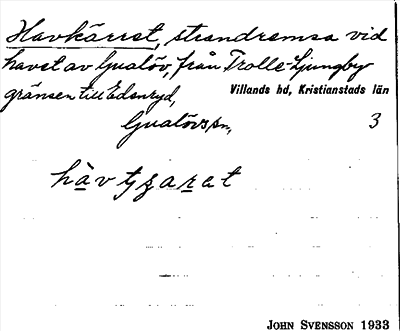 Havkärret, strandremsa vid
havet av Gualöv, från Trolle-Ljungby
gränsen till Edenryd, Villands hd, Kristianstads län
Gualövs sn, 3
JOHN SVENSSON 1933